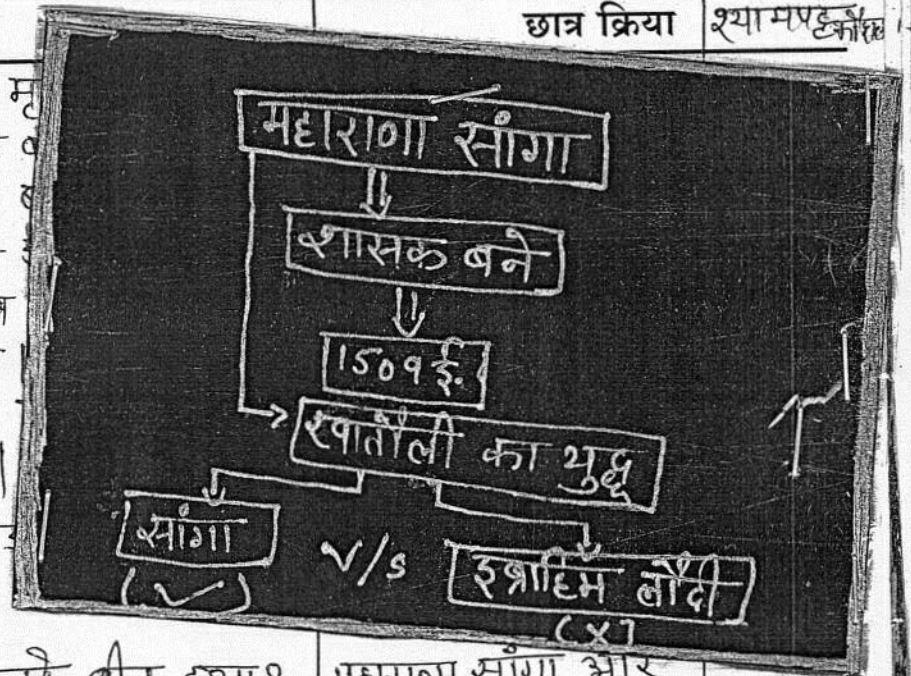 छात्र क्रिया श्यामपट्ट
महाराणा सांगा
शासक बने
1509 ई.
खातौली का युद्ध
सांगा V/s इब्राहिम लौदी
(✓) (X)
महाराणा सांगा और